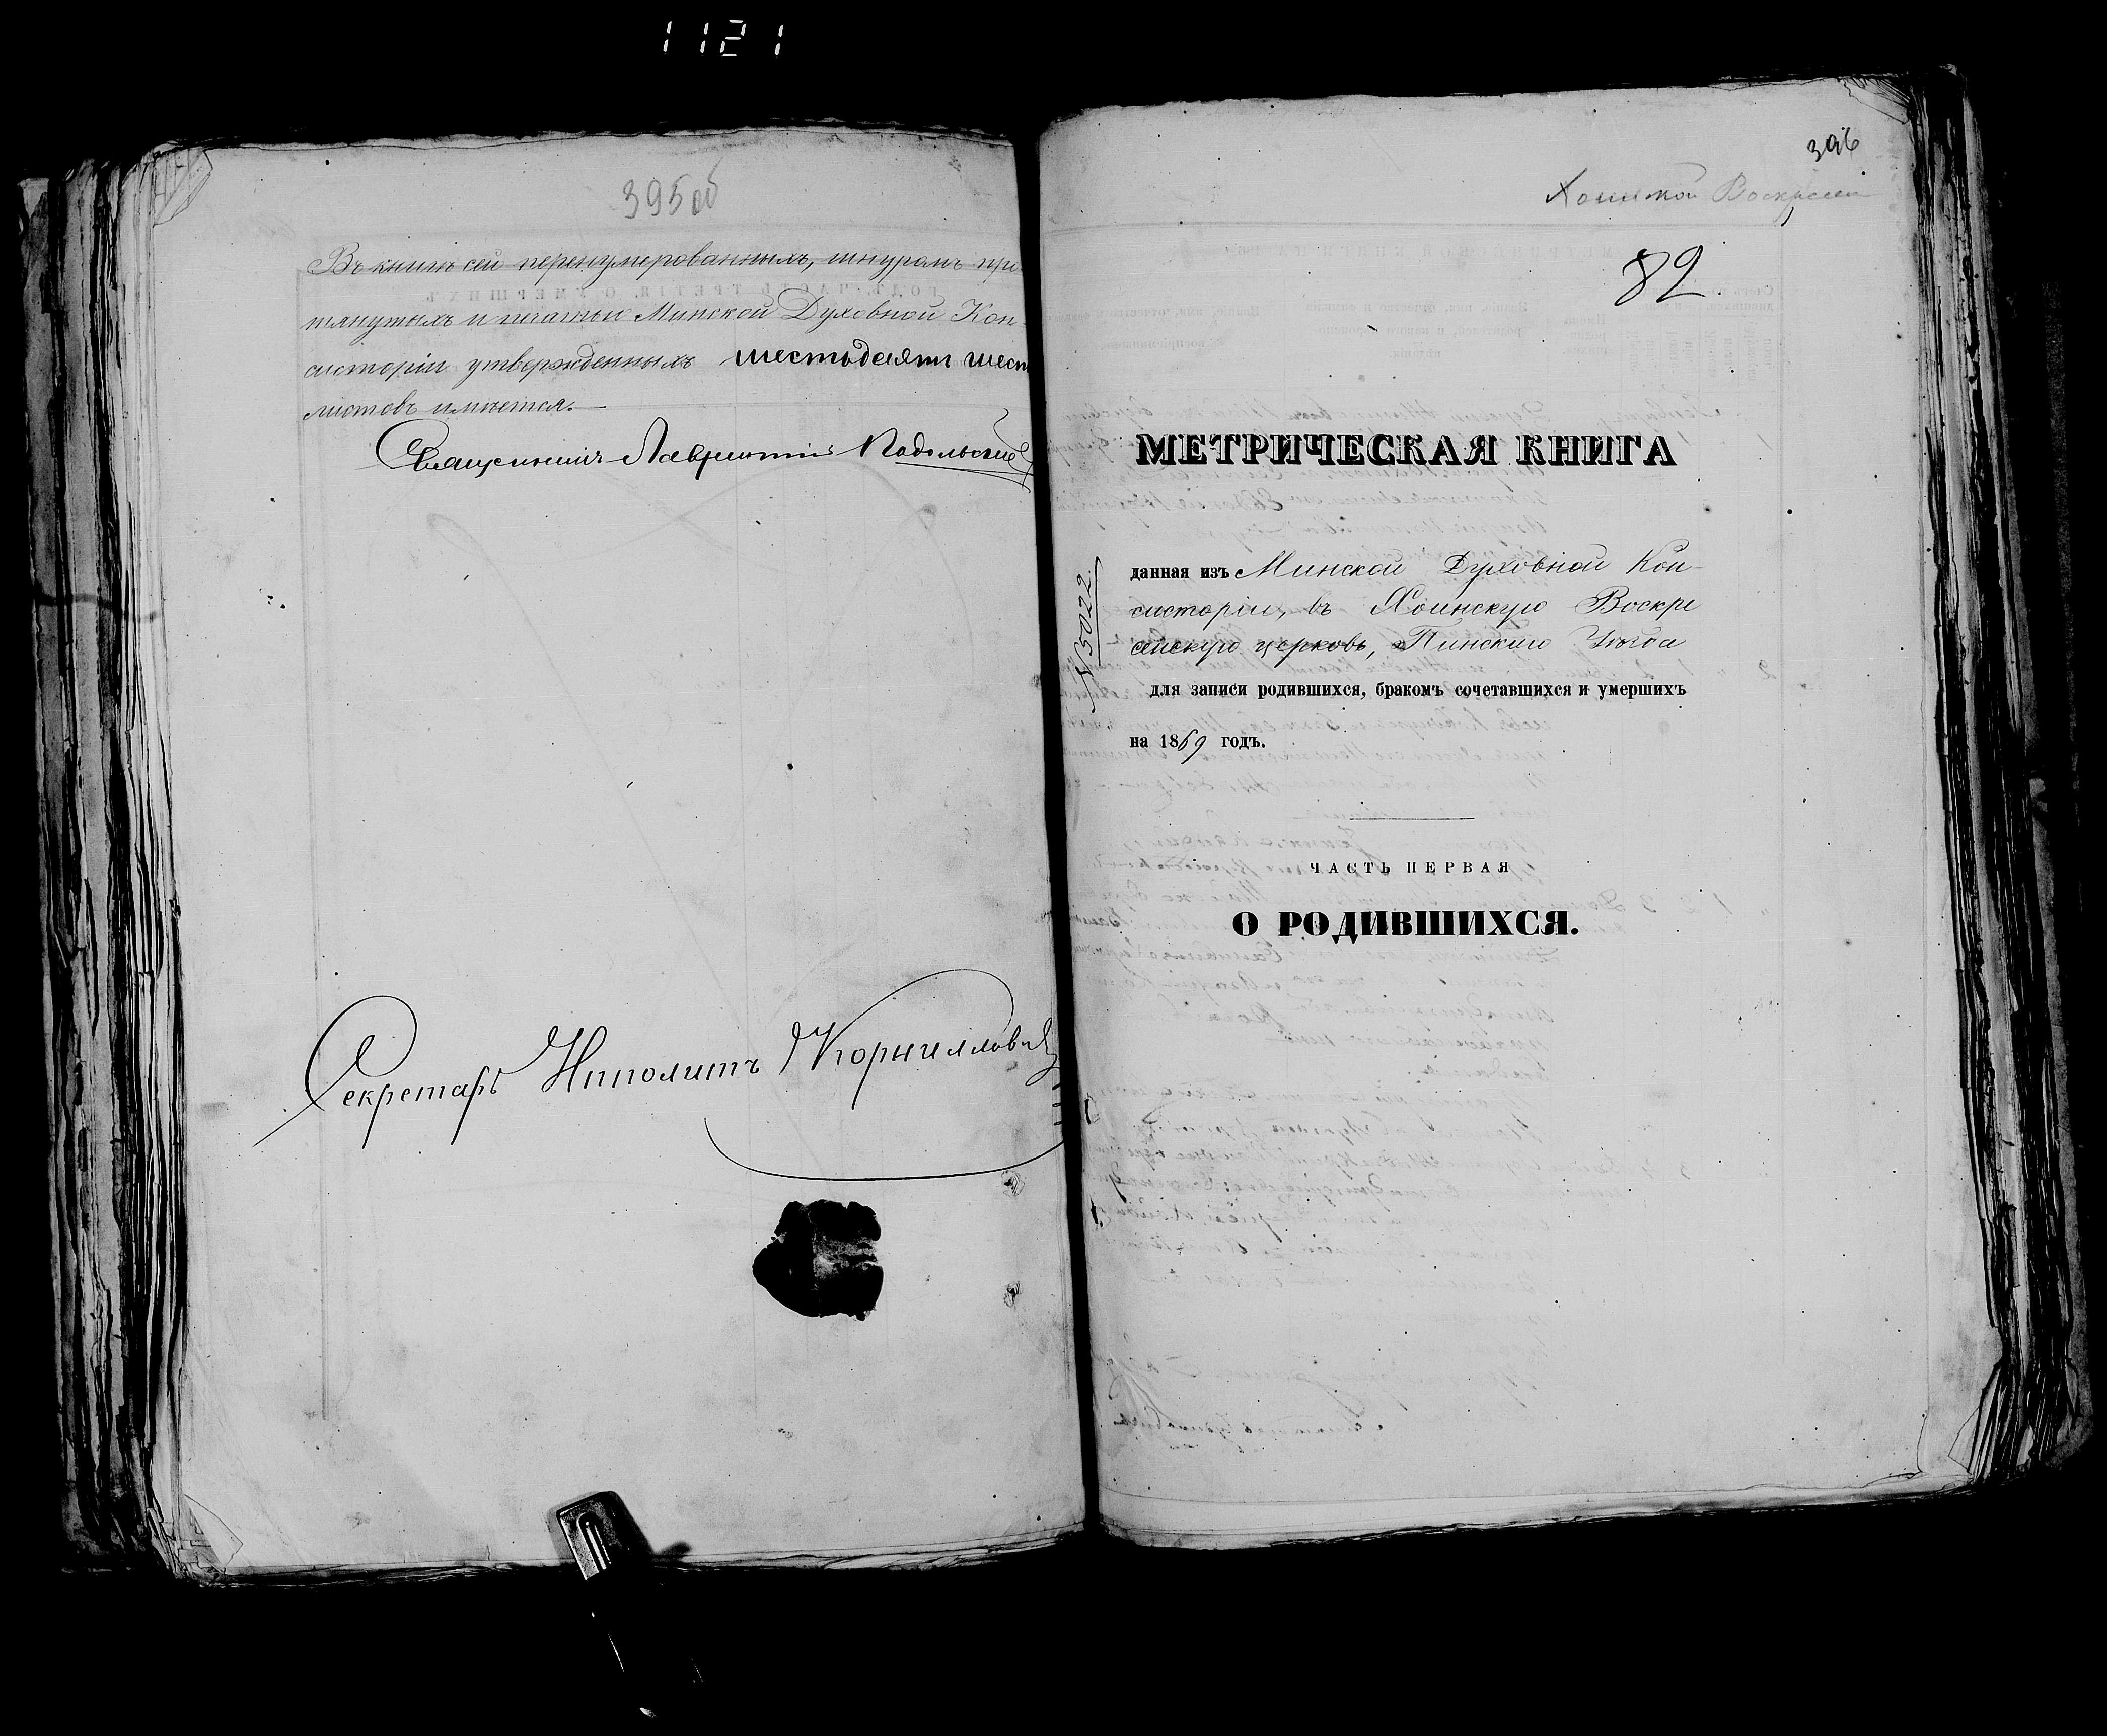 1121
395об
Въ книгѣ сей перенумерованныхъ, шнуромъ про
тянутыхъ и печатью Минской Духовной Кон-
систоріи утвержденныхъ шестьдесятъ шест
листовъ имѣется.
Священникъ Лаврентій Подольскій
Секретарь Ипполитъ Корнилловичъ
396
Хоинской Воскресен
82.
МЕТРИЧЕСКАЯ КНИГА
№ 5022
данная изъ Минской Духовной Кон-
систоріи, въ Хоинскую Воскре
сенскую церковь, Пинскаго Уѣзда
для записи родившихся, бракомъ сочетавшихся и умершихъ
на 1869 годъ.
ЧАСТЬ ПЕРВАЯ
О РОДИВШИХСЯ.